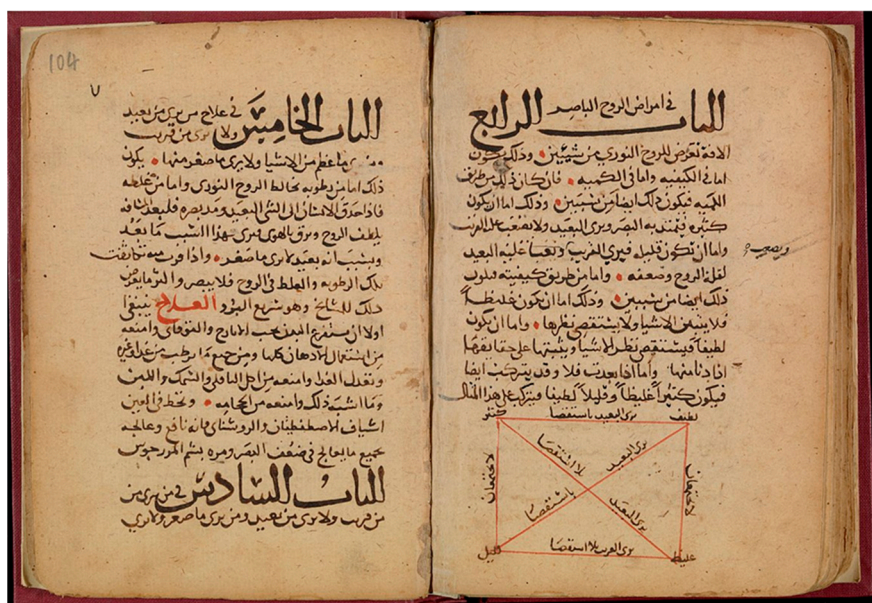 الباب الرابع في امراض الروح الباصر
الافة تعرض للروح النوري من شيين وذلك يكون
اما في الكيفيه واما في الكميه فان كان ذلك من طريق
الكميه فيكون ذلك ايضا من شيين وذلك اما ان يكون
كثيره فتمتد به البصر ويرى البعيد ولا يصعب عليه القريب
ويصعب
واما ان تكون قليله فيرى القريب عليه البعيد
لقلة الروح وضعفه واما من طريق كيفيته فيكون
ذلك ايضا من شيين وذلك اما ان يكون غليظاً
فلا يتبين الاشيا ولا يستقصي نظرها واما ان يكون
لطيفاً فيستقصي نظر الاشيا ويثبتها على حقايقها
اذا دنا منها واما اذا بعدت فلا وقد يتركب ايضا
فيكون كثيراً غليظاً وقليلاً لطيفا ويتركب على هذا المثال
لطيف يرى البعيد باستقصا كثير
لا يجتمعان
يرى البعيد بلا استقصا
يرى البعيد باستقصا
لا يجتمعان
غليظ يرى القريب بلا استقصا قليل
104
٧
الباب الخامس في علاج من يرى من بعيد
ولا يرى من قريب
ما عظم من الاشيا ولا يرى ما صغر منها يكون
ذلك اما من رطوبه تخالط الروح النوري واما من غلظه
فاذا حدق الانسان الى الشي البعيد ومد بصره فلبعد المسافه
يلطف الروح ويرق بالهوى فيرى بهذا السبب ما بعد
وبسبب انه بعيد لا يرى ما صغر واذا قرب منه تكاثفت
تلك الرطوبه والغلظ في الروح فلا يبصر واكثر ما يعرض
ذلك للمشايخ وهو سريع البرؤ العلاج ينبغي
اولا ان يستفرغ البدن بحب الايارج والقوقاي وامنعه
من استعمال الادهان كلها ومن جميع ما يرطب من غدا وغيره
وتعدل الغدا وامنعه من اكل الباقلى والسمك واللبن
وما اشبه ذلك وامنعه من الحجامه وتحط في العين
اشياف الاصطفطيقان والروشناي فانه نافع وعالجه
بجميع ما يعالج في ضعف البصر ومره بشم المرزجوس
الباب السادس في من يرى من
من قريب ولا يرى من بعيد ومن يرى ما صغر ولا يرى